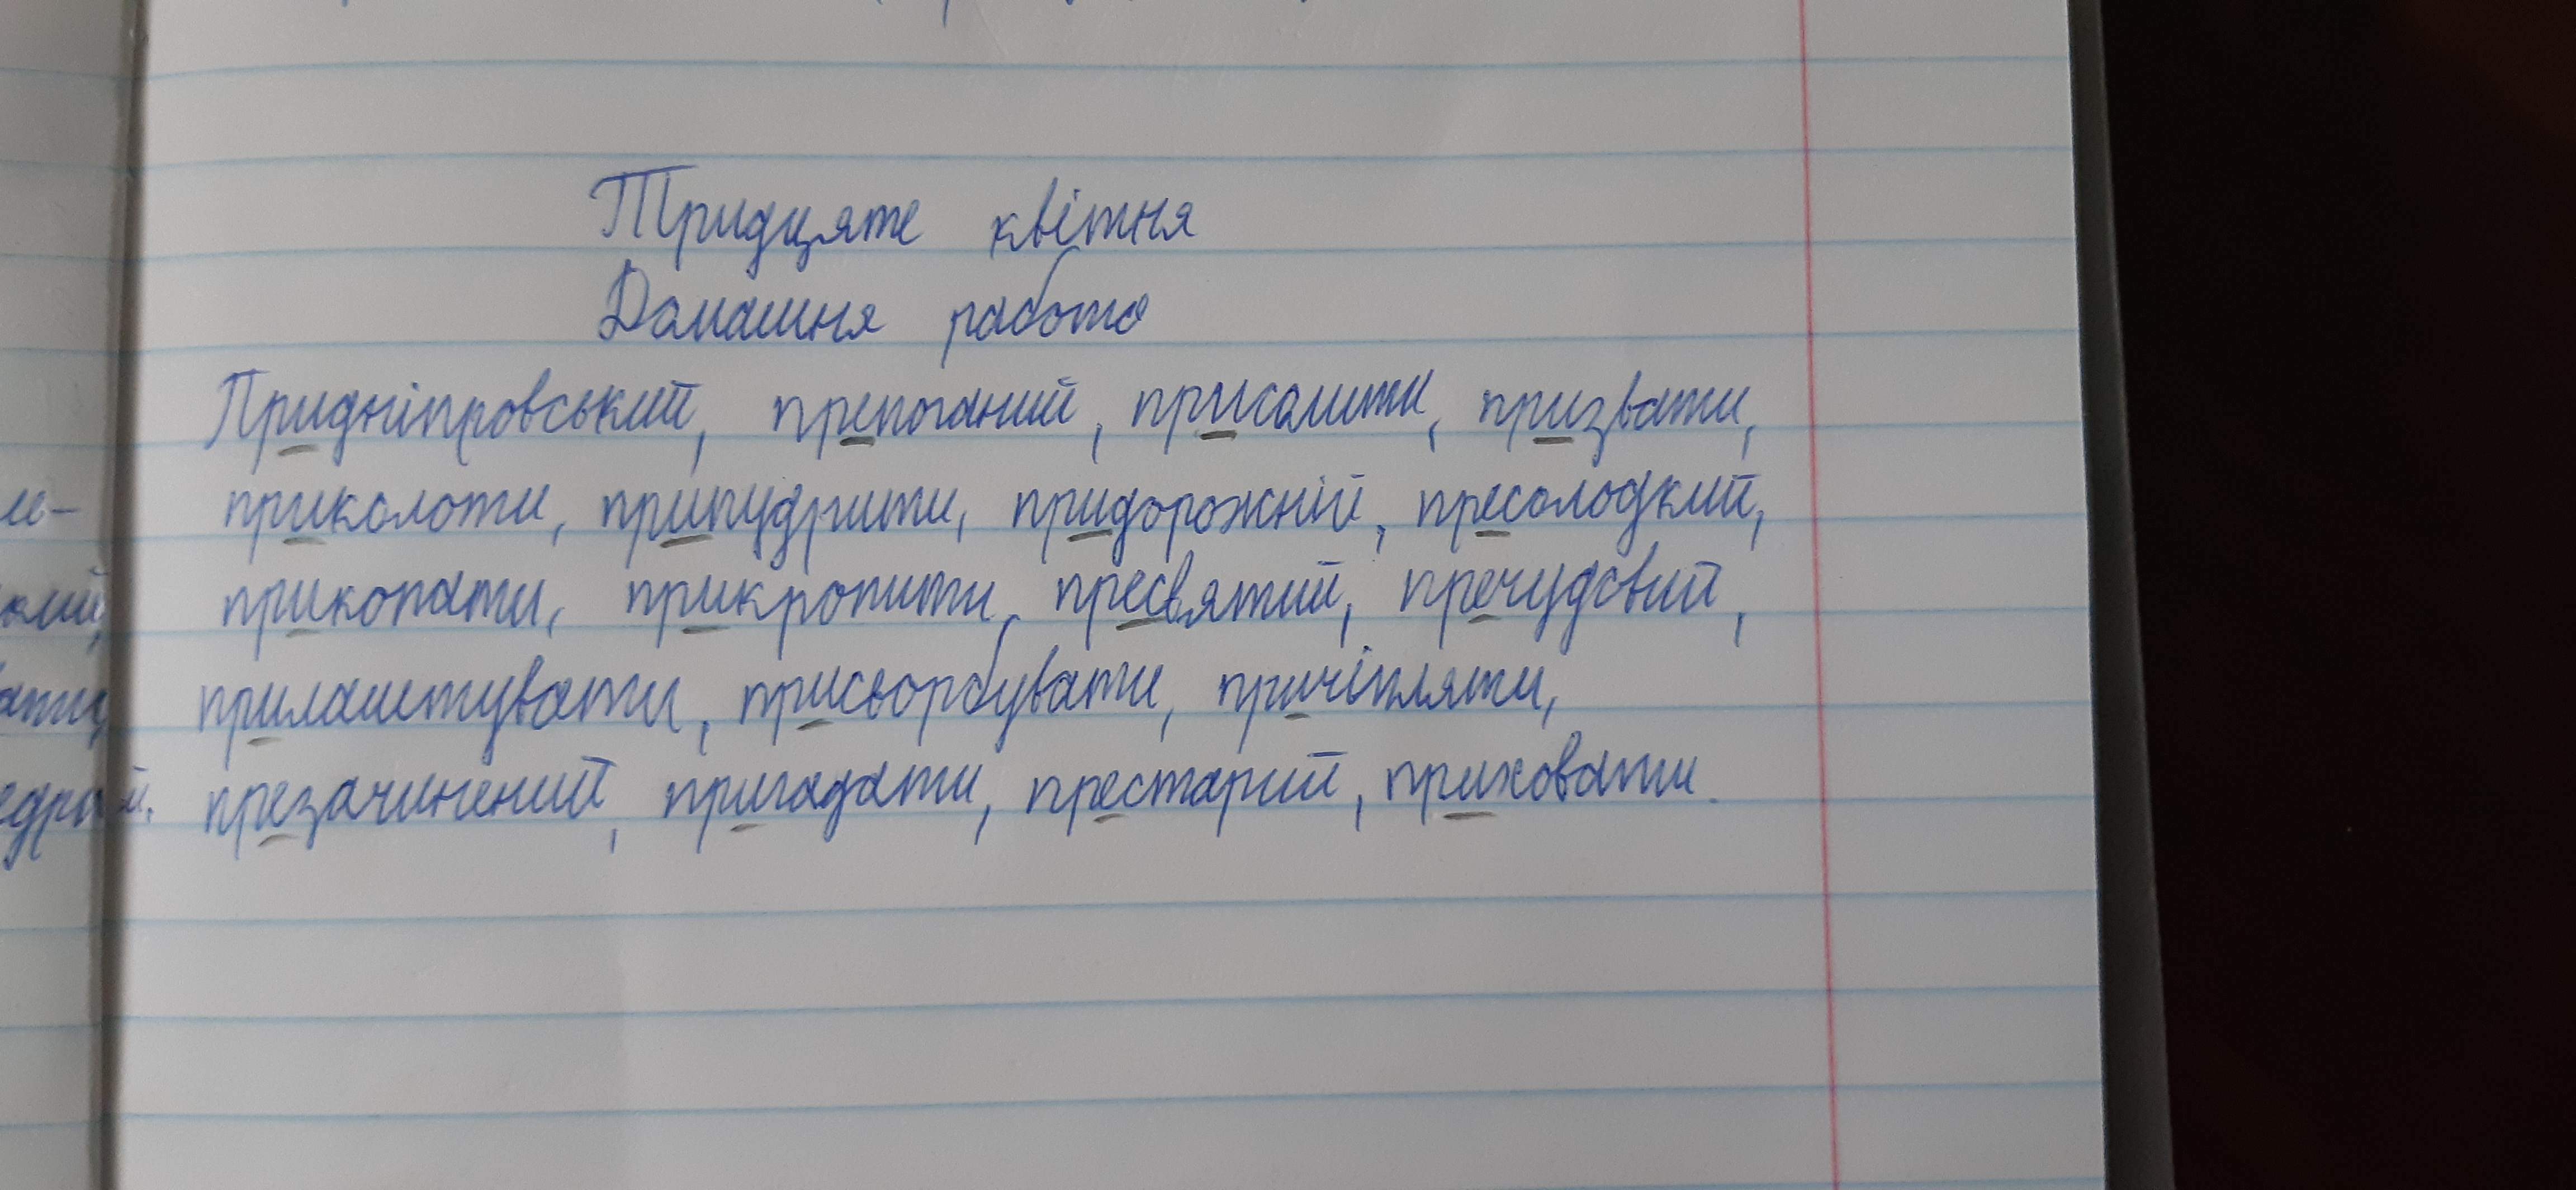 Тридцяте квітня
Домашня работа
Придніпровський, препоганий, присолити, призвати,
приколоти, припудрити, придорожній, пресолодкий,
прикопати, прикропити, пресвятий, пречудовий,
прилаштувати, присьорбувати, причіпляти,
презачинений, пригадати, престарий, приховати.